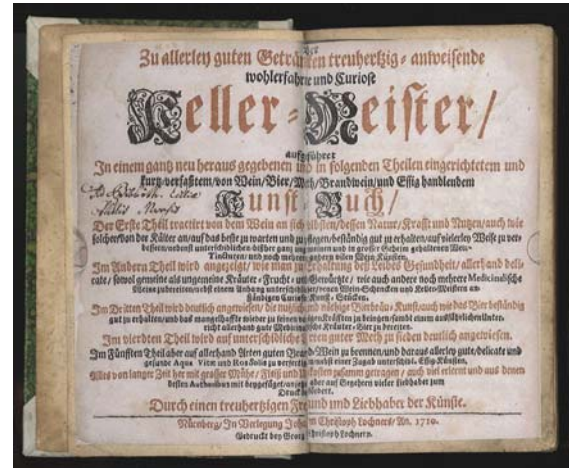 Der
Zu allerley guten Geträncken treuhertzig-anweisende
wohlerfahrne und Curiose
Keller-Meister/
aufführet
In einem gantz neu heraus gegebenen und in folgenden Theilen eingerichtetem und
kurtz-verfaßtem/von Wein/Bier/Meth/Brandwein/und Essig handlendem
Kunst-Buch/
Der Erste Theil tractirt von dem Wein an sich selbsten/dessen Natur/Krafft und Nutzen/auch wie
solcher/von der Kälter an/auf das beste zu warten und zu pflegen/beständig gut zu erhalten/auf vielerley Weise zu ver-
bessern/nebenst unterschiedlichen bißher gantz ungemeinen und in grosser Geheim gehaltenen Wein-
Tincturen/und noch mehren andern vilen Wein Künsten.
Im Andern Theil wird angezeigt/wie man zu Erhaltung deß Leibes Gesundheit/allerhand deli-
cate/sowol gemeine als ungemeine Kräuter-Frucht-und Gewürtz/wie auch andere noch mehrere Medicinalische
Weine zubereiten/nebst einem Anhang unterschiedlicher/denen Wein-Schencken und Keller-Meistern an-
ständigen Curiosen Kunst-Stücken.
Im Dritten Theil wird deutlich angewiesen/die nützlich und nöthige Bierbräu-Kunst/auch wie das Bier beständig
gut zu erhalten/und das mangelhaffte wieder zu seinen vorigen Kräfften zu bringen/samt einem ausführlichen Unter-
richt allerhand gute Medicinalische Kräuter-Bier zu bereiten.
Im vierdten Theil wird auf unterschiedliche Arten guten Meth zu sieden deutlich angewiesen.
Im Fünfften Theil aber auf allerhand Arten guten Brand-Wein zu brennen/und daraus allerley gute/delicate und
gesunde Aqua Vitæ und Ros Solis zu verfertigen/nebst einer Zugab unterschidl. Essig-Künsten.
Alles von langer Zeit her mit grosser Mühe/Fleiß und Unkosten zusamm getragen/auch viel erlernt und aus denen
besten Authoribus mit beygefüget/anjetzo aber auf Begehren vieler Liebhaber zum
Druck befördert.
Durch einen treuhertzigen Freund und Liebhaber der Künste.
Nürnberg/In Verlegung Johann Christoph Lochners/An. 1710.
Gedruckt bey Georg Christoph Lochnern.